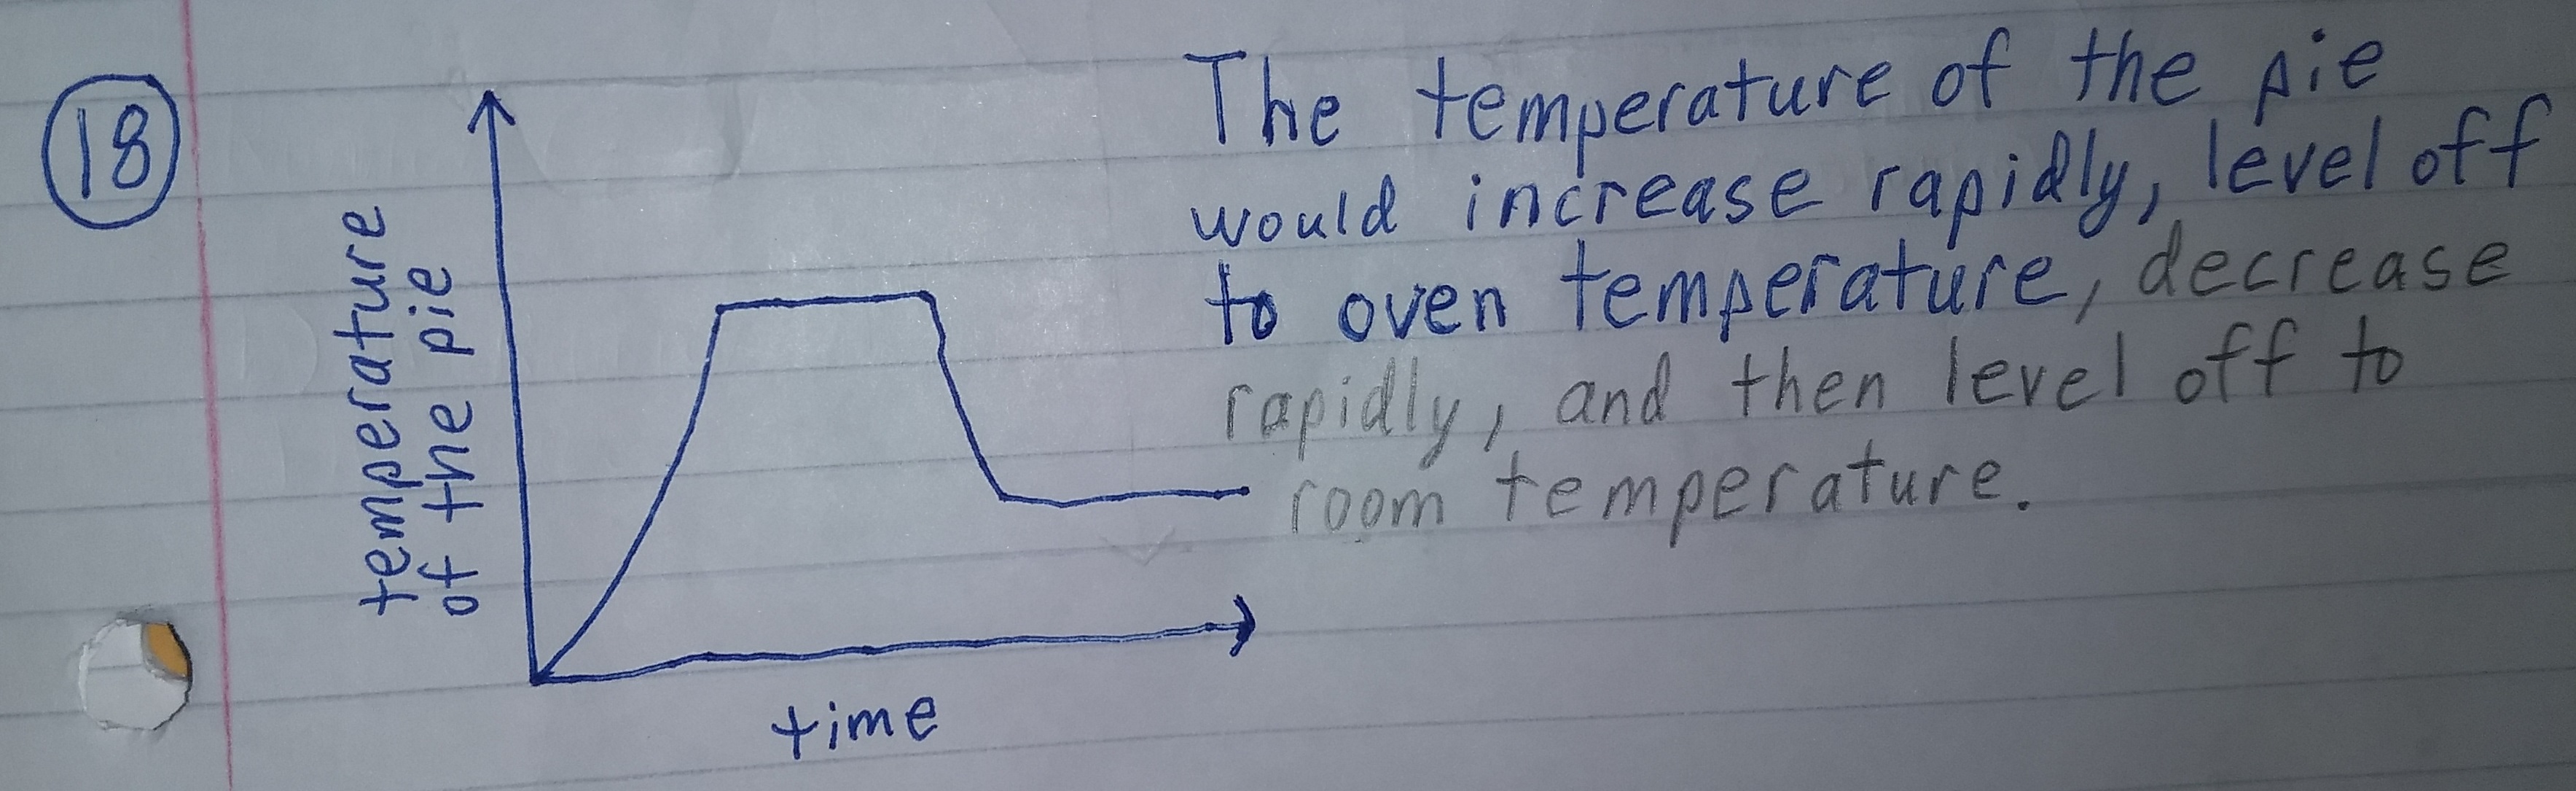 18
temperature
of the pie
time
The temperature of the pie
would increase rapidly, level off
to oven temperature, decrease
rapidly, and then level off to
room temperature.